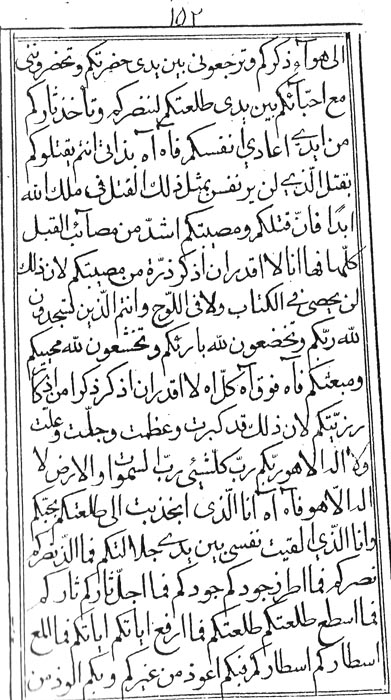 ١٥٢
الی هو آه ذکرکم و ترجعونی بین یدی حضرتکم و تحضروننی
مع احبّائکم بین یدی طلعتکم لننصرکم و ناخذ ثارکم
من ایدی اعادی انفسکم فآه آه بذاتی انتم یقتلوکم
بقتل الذی لن یر نفس بمثل ذلک القتل فی ملک الله
ابدا فانّ قتلکم و مصیبتکم اشدّ من مصائب القبل
کلّها ها انا لا اقدر ان اذکر ذرّة من مصیبتکم لان ذلک
لن یحصی فی الکتاب ولا فی اللوح و انتم الذین تسجدون
لله ربّکم و تخضعون لله بارئکم و تخشعون لله محییکم
و مبعثکم فآه فوق آه کلّ اه لا اقدر ان اذکر ذکرا من اذکار
رزیّتکم لان ذلک قد کبرت و عظمت و جلّت و علت
و لا اله الا هو ربّکم ربّ کلشیئ ربّ السموات و الارض لا
اله الا هو فآه آه انا الذی انجذبت الی طلعتکم بحبّکم
و انا الذی القیت نفسی بین یدی جلالتکم فما الذّ نصرکم
نصرکم فما اطرز جودکم جودکم فما اجلّ ثارکم ثارکم
فما اسطع طلعتکم طلعتکم فما ارفع ایاتکم ایاتکم فما المع
اسطارکم اسطارکم فبکم اعوذ من غیرکم و بکم الوذ من